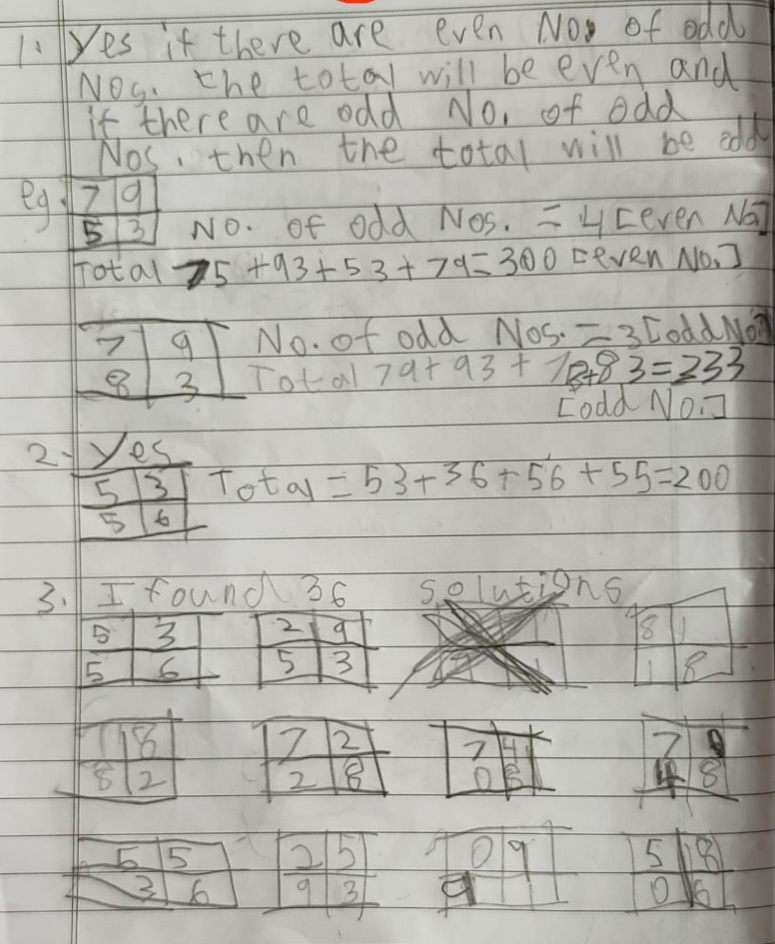 1. Yes if there are even No. of odd
Nos. the total will be even and
if there are odd No. of odd
Nos. then the total will be odd
eg. 7 9
5 3 No. of odd Nos. = 4 [even No.]
Total 75 + 93 + 53 + 79 = 300 [even No.]
7 9 No. of odd Nos. = 3 [odd No.]
8 3 Total 79 + 93 + 78 + 83 = 233
[odd No.]
2. Yes
5 3 Total = 53 + 36 + 56 + 55 = 200
5 6
3. I found 36 solutions
5 3 2 9 8 1
5 6 5 3 1 8
8 7 2 7 4 7
8 2 2 8 0 8 4 8
5 5 2 5 0 9 5 8
3 6 9 3 9 0 6